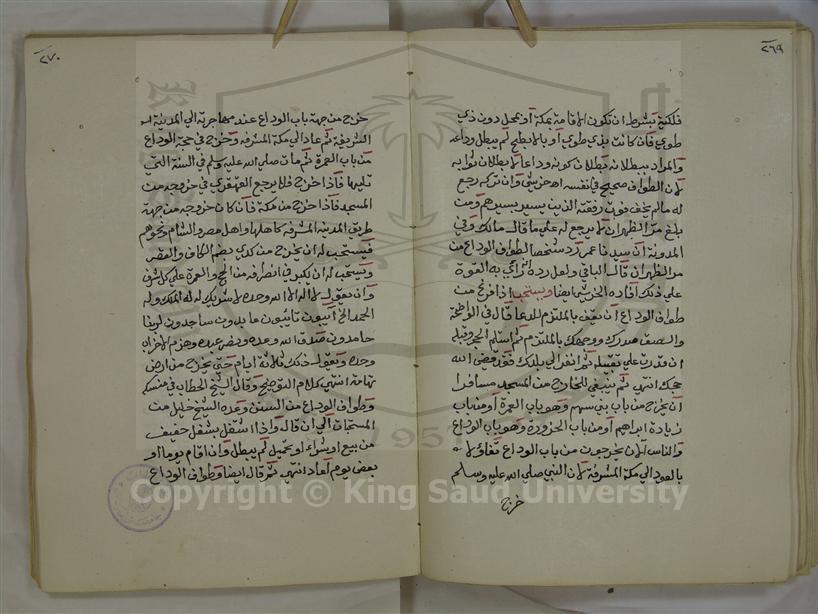 ٢٦٩
فلكنه يشترط ان تكون الاقامة بمكة او بمحل دون ذي
طوى فان كانت بذي طوى او بالابطح لم يبطل وداعه
والمراد ببطلانه بطلان كونه وداعا لا بطلان ثوابه
لان الطواف صحيح في نفسه اه خرشي وان تركه رجع
له مالم يخف فوت رفقته الذين يسير بسيرهم ومتى
بلغ مر الظهران لا يرجع له على ما قال مالك وفي
المدونة ان سيدنا عمر رد شخصا لطواف الوداع من
مر الظهران قال الباقي ولعل رده لمن رأى به القوة
على ذلك افاده الخرشي ايضا ويستحب اذا فرغ من
طواف الوداع ان يقف بالملتزم للدعا قال في الواضحة
والصق صدرك ووجهك بالملتزم ثم استلم الحجر وقبله
ان قدرت على تقبيله ثم انفر الى بلدك فقد قضى الله
حجك انتهى ثم ينبغي للخارج من المسجد مسافرا
ان يخرج من باب بني سهم وهو باب العمرة او من باب
زيادة ابراهيم او من باب الحزورة وهو باب الوداع
والناس الآن يخرجون من باب الوداع تفاؤلا
بالعود الى مكة المشرفة لان النبي صلى الله عليه وسلم
خرج
٢٧٠
خرج من جهة باب الوداع عند مهاجرته الى المدينة
الشريفة ثم عاد الى مكة المشرفة وخرج في حجة الوداع
من باب العمرة ثم مات صلى الله عليه وسلم في السنة التي
تليها فاذا خرج فلا يرجع القهقرى في خروجه من
المسجد فاذا خرج من مكة فان كان خروجه من جهة
طريق المدينة المشرفة كاهلها واهل مصر والشام ونحوهم
فيستحب له ان يخرج من كدى بضم الكاف والقصر
ويستحب له ان يكبر في انصرافه من الحج والعمرة على كل شرف
وان يقول لا اله الا الله وحده لا شريك له له الملك وله
الحمد الخ آئبون تائبون عابدون ساجدون لربنا
حامدون صدق الله وعده ونصر عبده وهزم الاحزاب
وحده ويقول ذلك ثلاثة ايام حتى يخرج من ارض
تهامة انتهى كلام التوضيح وقال الشيخ الحطاب في منسكه
وطواف الوداع من السنن وعده الشيخ خليل من
المستحبات الى ان قال واذا اشتغل بشغل خفيف
من بيع او شراء او تحميل لم يبطل وان اقام يوما او
بعض يوم اعاد انتهى ثم قال ايضا وطواف الوداع
1957
Copyright © King Saud University